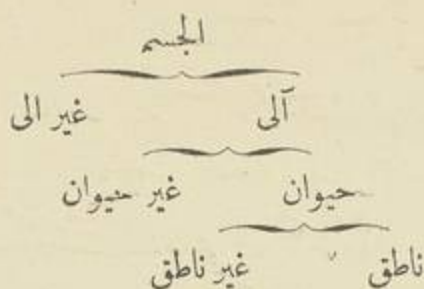 الجسم
آلى غير الى
حيوان غير حيوان
ناطق غير ناطق